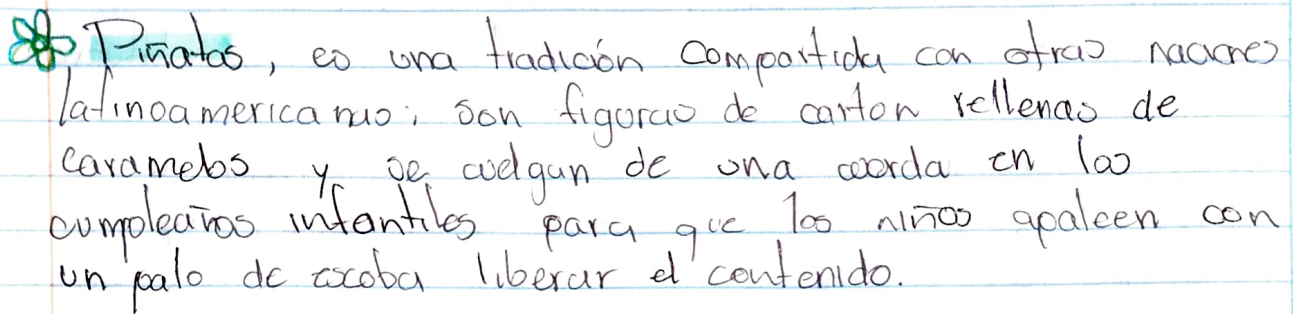 Piñatas, es una tradición compartida con otras naciones
latinoamericanas; son figuras de carton rellenas de
caramelos y se cuelgan de una cuerda en los
cumpleaños infantiles para que los niños apaleen con
un palo de escoba liberar el contenido.